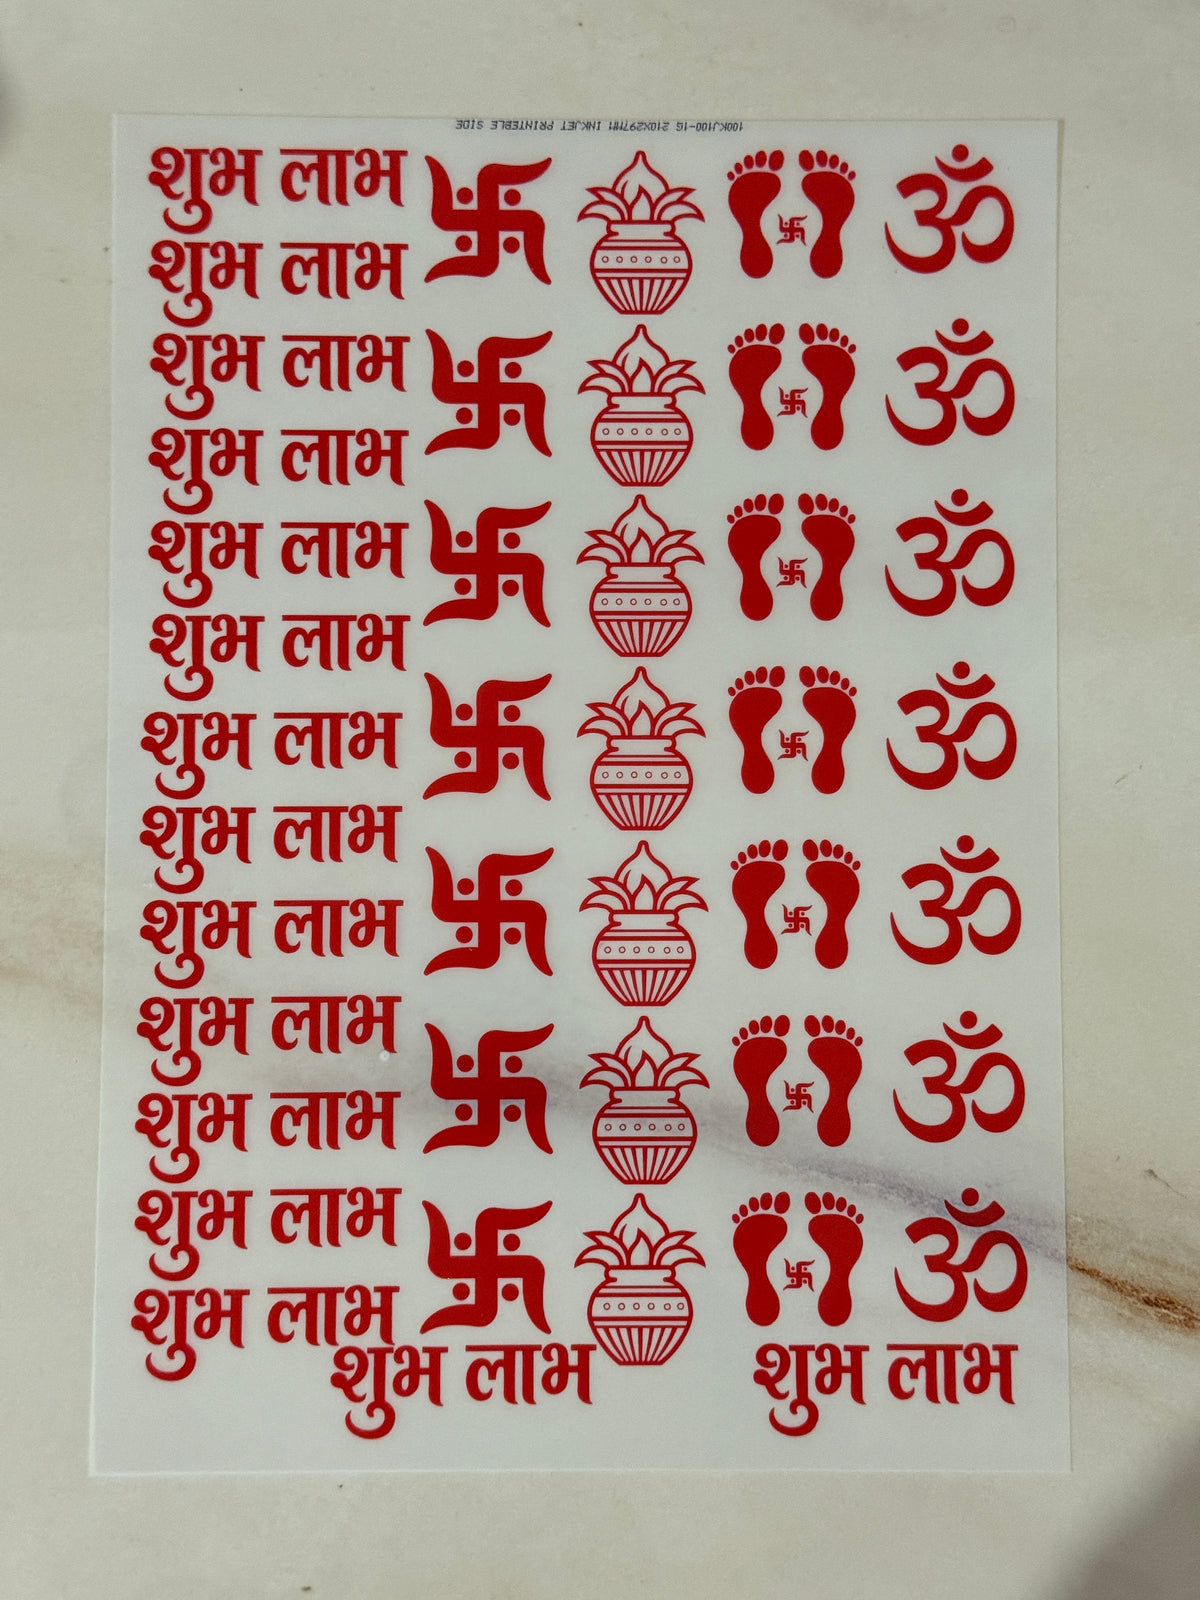 100KJ100-1G 210X297MM INKJET PRINTEBLE SIDE
शुभ लाभ
शुभ लाभ
शुभ लाभ
शुभ लाभ
शुभ लाभ
शुभ लाभ
शुभ लाभ
शुभ लाभ
शुभ लाभ
शुभ लाभ
शुभ लाभ
शुभ लाभ
शुभ लाभ
ॐ
ॐ
ॐ
ॐ
ॐ
ॐ
ॐ
शुभ लाभ
शुभ लाभ